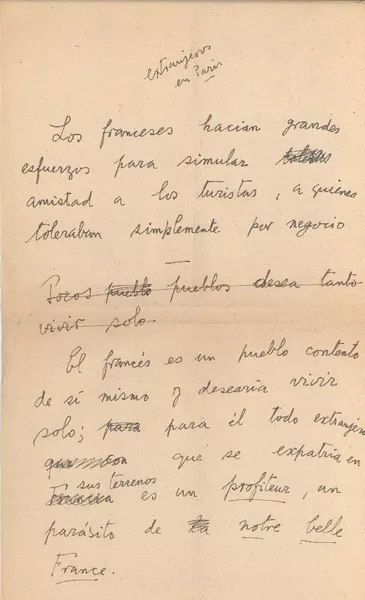 extranjeros
en Paris
Los franceses hacian grandes
esfuerzos para simular
amistad a los turistas, a quienes
toleraban simplemente por negocio
—
Pocos pueblo pueblos desea tanto
vivir solo
El francés es un pueblo contento
de sí mismo y desearía vivir
solo; para para él todo extranjero
que se expatria en
sus terrenos
Francia es un profiteur, un
parásito de la notre belle
France.